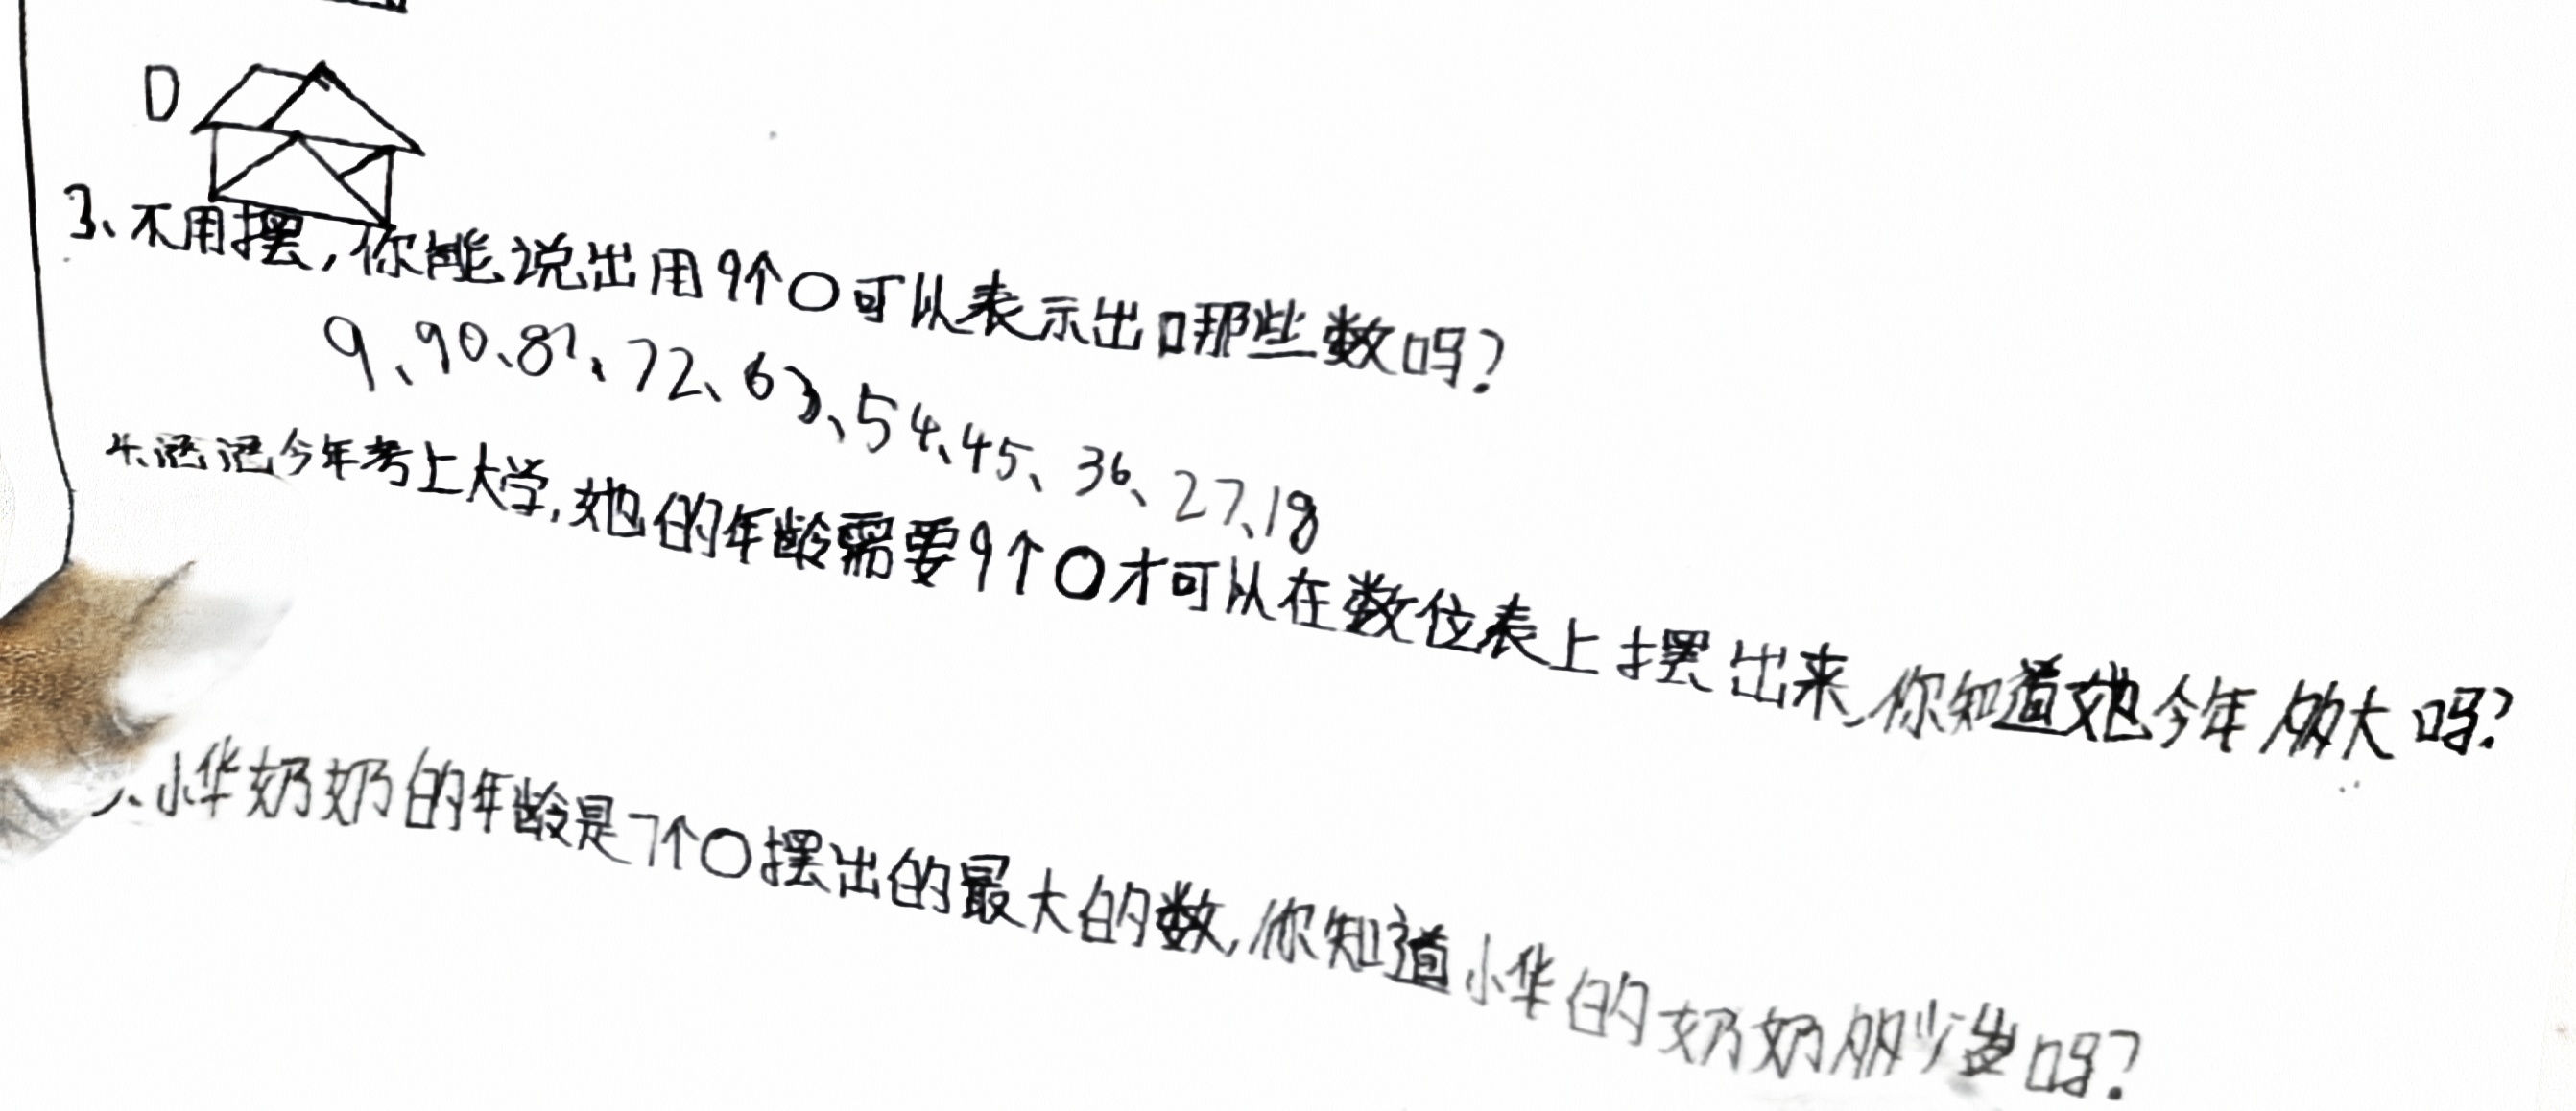 D
3、不用摆,你能说出用9个○可以表示出哪些数吗?
9、90、81、72、63、54、45、36、27、18
4、涵涵今年考上大学,她的年龄需要9个○才可以在数位表上摆出来,你知道她今年多大吗?
、小华奶奶的年龄是7个○摆出的最大的数,你知道小华的奶奶多少岁吗?